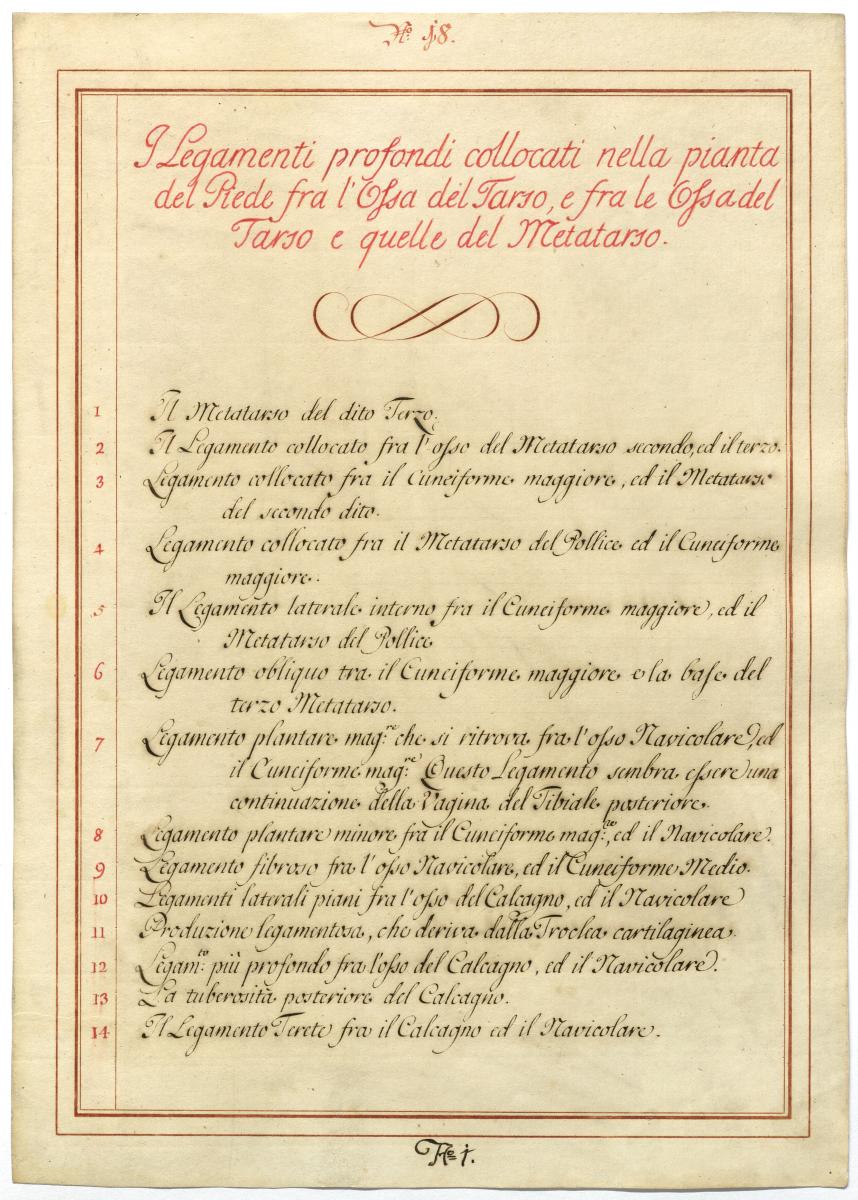 No. 18.
I Legamenti profondi collocati nella pianta
del Piede fra l'Ossa del Tarso, e fra le Ossa del
Tarso e quelle del Metatarso.
1 Il Metatarso del dito Terzo.
2 Il Legamento collocato fra l'osso del Metatarso secondo, ed il terzo.
3 Legamento collocato fra il Cuneiforme maggiore, ed il Metatarso
del secondo dito.
4 Legamento collocato fra il Metatarso del Pollice ed il Cuneiforme
maggiore.
5 Il Legamento laterale interno fra il Cuneiforme maggiore, ed il
Metatarso del Pollice
6 Legamento obliquo tra il Cuneiforme maggiore e la base del
terzo Metatarso.
7 Legamento plantare mag.re che si ritrova fra l'osso Navicolare, ed
il Cuneiforme mag.re Questo Legamento sembra essere una
continuazione della Vagina del Tibiale posteriore.
8 Legamento plantare minore fra il Cuneiforme mag.re, ed il Navicolare.
9 Legamento fibroso fra l'osso Navicolare, ed il Cuneiforme Medio.
10 Legamenti laterali piani fra l'osso del Calcagno, ed il Navicolare
11 Produzione legamentosa, che deriva dalla Troclea cartilaginea.
12 Legam.to più profondo fra l'osso del Calcagno, ed il Navicolare.
13 La tuberosità posteriore del Calcagno.
14 Il Legamento Terete fra il Calcagno ed il Navicolare.